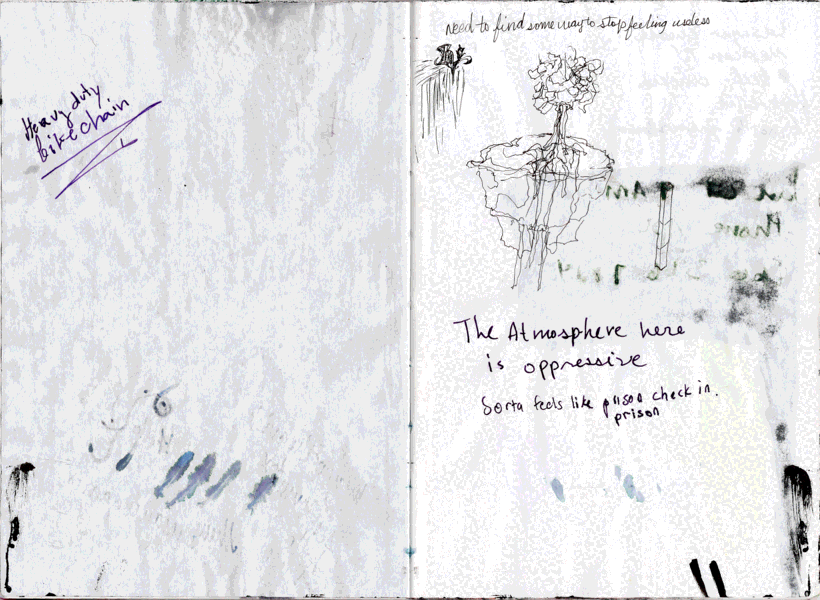 Heavy duty
bike chain
need to find some way to stop feeling useless
The Atmosphere here
is oppressive
Sorta feels like prison check in.
prison
Phone